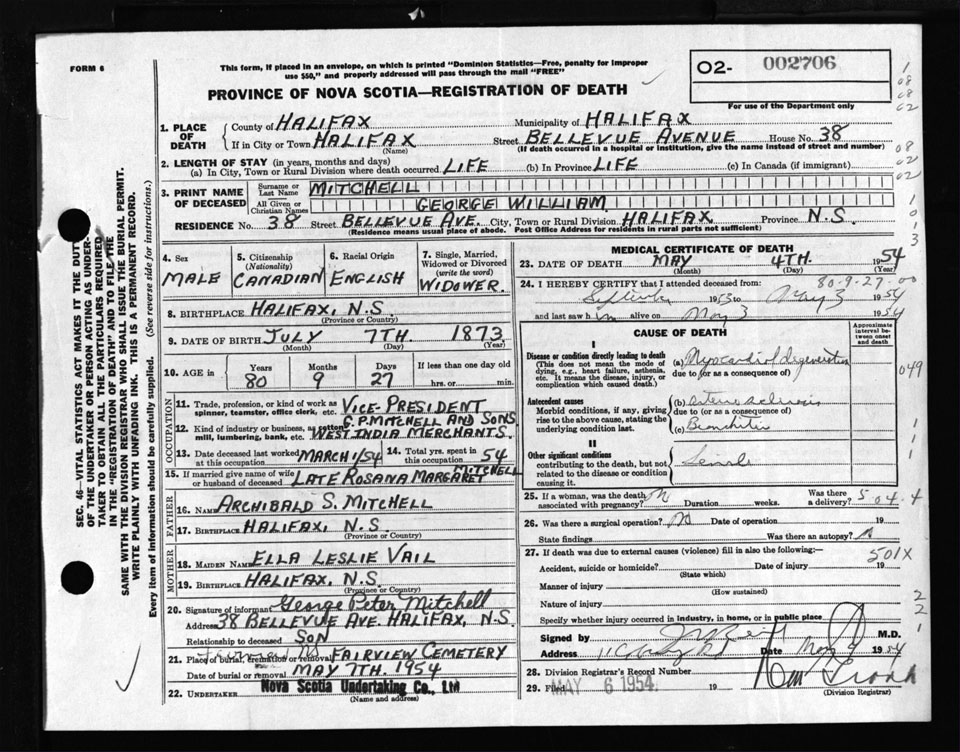 FORM 6
This form, if placed in an envelope, on which is printed "Dominion Statistics—Free, penalty for improper
use $50," and properly addressed will pass through the mail "FREE"
O2- 002706
For use of the Department only
PROVINCE OF NOVA SCOTIA—REGISTRATION OF DEATH
1. PLACE OF DEATH
County of HALIFAX Municipality of HALIFAX
If in City or Town HALIFAX (Name) Street BELLEVUE AVENUE House No. 38
(If death occurred in a hospital or institution, give the name instead of street and number)
2. LENGTH OF STAY (in years, months and days)
(a) In City, Town or Rural Division where death occurred LIFE (b) In Province LIFE (c) In Canada (if immigrant)
3. PRINT NAME OF DECEASED
Surname or Last Name MITCHELL
All Given or Christian Names GEORGE WILLIAM
RESIDENCE No. 38 Street BELLEVUE AVE. City, Town or Rural Division HALIFAX Province N.S.
(Residence means usual place of abode. Post Office Address for residents in rural parts not sufficient)
4. Sex MALE
5. Citizenship (Nationality) CANADIAN
6. Racial Origin ENGLISH
7. Single, Married, Widowed or Divorced (write the word) WIDOWER.
8. BIRTHPLACE HALIFAX, N.S.
(Province or Country)
9. DATE OF BIRTH JULY 7TH. 1873
(Month) (Day) (Year)
10. AGE in Years 80 Months 9 Days 27 If less than one day old hrs. or min.
OCCUPATION
11. Trade, profession, or kind of work as spinner, teamster, office clerk, etc. VICE-PRESIDENT
12. Kind of industry or business, as cotton mill, lumbering, bank, etc. G.P. MITCHELL AND SONS WEST INDIA MERCHANTS.
13. Date deceased last worked at this occupation MARCH 1/54
14. Total yrs. spent in this occupation 54
15. If married give name of wife or husband of deceased LATE ROSANA MARGARET MITCHELL
FATHER
16. Name ARCHIBALD S. MITCHELL
17. Birthplace HALIFAX, N.S.
(Province or Country)
MOTHER
18. Maiden Name ELLA LESLIE VAIL
19. Birthplace HALIFAX, N.S.
(Province or Country)
20. Signature of informant George Peter Mitchell
Address 38 BELLEVUE AVE. HALIFAX, N.S.
Relationship to deceased SON
21. Place of burial, cremation or removal FAIRVIEW CEMETERY
Date of burial or removal MAY 7TH. 1954
22. UNDERTAKER Nova Scotia Undertaking Co., Ltd
(Name and address)
MEDICAL CERTIFICATE OF DEATH
23. DATE OF DEATH MAY 4TH. 1954
(Month) (Day) (Year)
80-9-27-00
24. I HEREBY CERTIFY that I attended deceased from
September 1953 to May 3 1954
and last saw him alive on May 3 1954
CAUSE OF DEATH
Approximate interval between onset and death
I
Disease or condition directly leading to death
(This does not mean the mode of dying, e.g., heart failure, asthenia, etc. It means the disease, injury, or complication which caused death.)
(a) Myocardial degeneration
due to (or as a consequence of)
Antecedent causes
Morbid conditions, if any, giving rise to the above cause, stating the underlying condition last.
(b) Arterio sclerosis
due to (or as a consequence of)
(c) Bronchitis
II
Other significant conditions
contributing to the death, but not related to the disease or condition causing it.
Senile
25. If a woman, was the death associated with pregnancy? No Duration weeks. Was there a delivery?
26. Was there a surgical operation? No Date of operation 19
State findings Was there an autopsy?
27. If death was due to external causes (violence) fill in also the following:—
501X
Accident, suicide or homicide? Date of injury 19
(State which)
Manner of injury
(How sustained)
Nature of injury
Specify whether injury occurred in industry, in home, or in public place
Signed by M.D.
Address Date May 1954
28. Division Registrar's Record Number
29. Filed MAY 6 1954 19
(Division Registrar)
SEC. 46—VITAL STATISTICS ACT MAKES IT THE DUTY
OF THE UNDERTAKER OR PERSON ACTING AS UNDER-
TAKER TO OBTAIN ALL THE PARTICULARS REQUIRED
IN THE "REGISTRATION OF DEATH" AND TO FILE THE
SAME WITH THE DIVISION REGISTRAR WHO SHALL ISSUE THE BURIAL PERMIT.
WRITE PLAINLY WITH UNFADING INK. THIS IS A PERMANENT RECORD.
Every item of information should be carefully supplied. (See reverse side for instructions.)